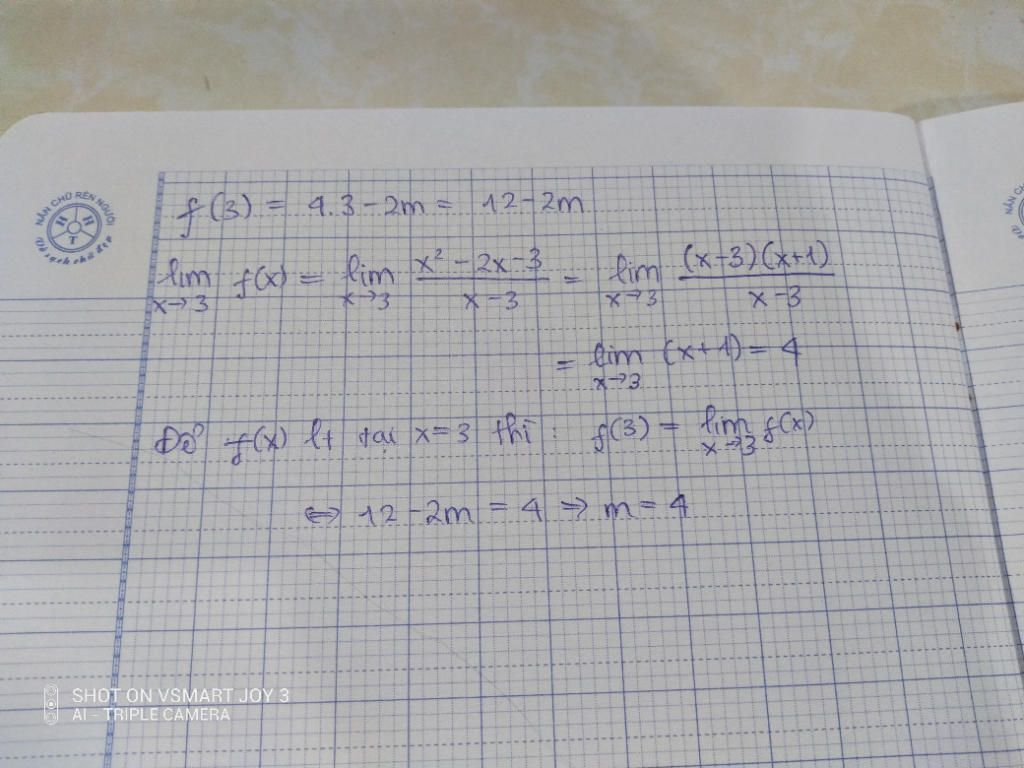 NẮN CHỮ RÈN NGƯỜI
HHT
f(3) = 4.3 - 2m = 12 - 2m
lim x→3 f(x) = lim x→3 (x² - 2x - 3)/(x - 3) = lim x→3 (x-3)(x+1)/(x-3)
= lim x→3 (x+1) = 4
Để f(x) lt tại x=3 thì : f(3) = lim x→3 f(x)
⇔ 12 - 2m = 4 ⇒ m = 4
SHOT ON VSMART JOY 3
AI - TRIPLE CAMERA